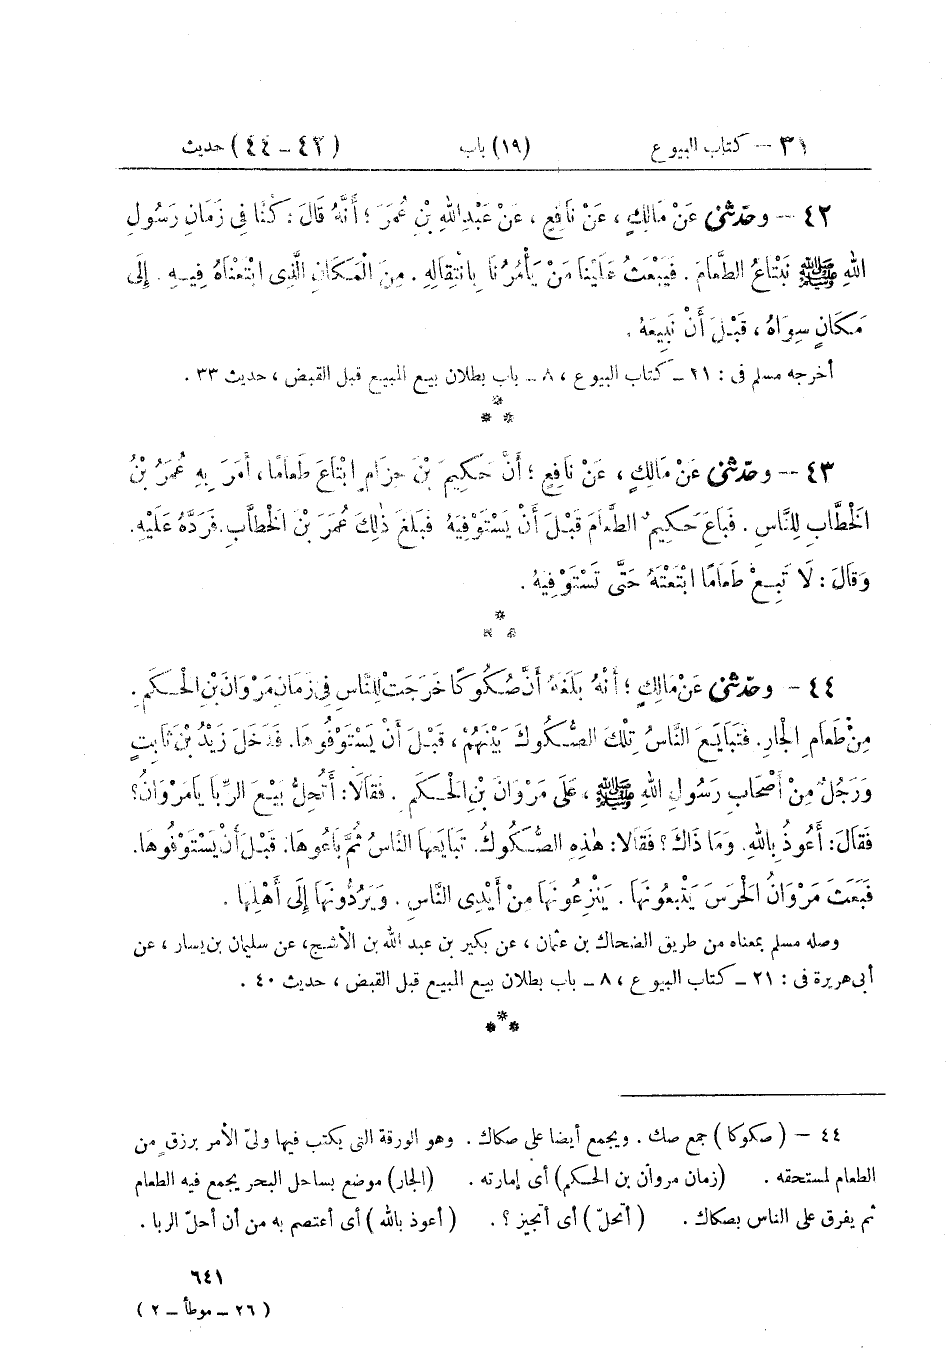 ٣١ – كتاب البيوع (١٩) باب (٤٢ – ٤٤) حديث
٤٢ – وحدّثنى عَنْ مَالِكٍ ، عَنْ نَافِعٍ ، عَنْ عَبْدِ اللهِ بْنِ عُمَرَ ؛ أَنَّهُ قَالَ : كُنَّا فِى زَمَانِ رَسُولِ
اللهِ ﷺ نَبْتَاعُ الطَّعَامَ . فَيَبْعَثُ عَلَيْنَا مَنْ يَأْمُرُنَا بِانْتِقَالِهِ . مِنَ الْمَكَانِ الَّذِى ابْتَعْنَاهُ فِيهِ . إِلَى
مَكَانٍ سِوَاهُ ، قَبْلَ أَنْ نَبِيعَهُ .
أخرجه مسلم فى : ٢١ – كتاب البيوع ، ٨ – باب بطلان بيع المبيع قبل القبض ، حديث ٣٣ .
*
* *
٤٣ – وحدّثنى عَنْ مَالِكٍ ، عَنْ نَافِعٍ ؛ أَنَّ حَكِيمَ بْنَ حِزَامٍ ابْتَاعَ طَعَامًا ، أَمَرَ بِهِ عُمَرُ بْنُ
الْخَطَّابِ لِلنَّاسِ . فَبَاعَ حَكِيمٌ الطَّعَامَ قَبْلَ أَنْ يَسْتَوْفِيَهُ فَبَلَغَ ذٰلِكَ عُمَرَ بْنَ الْخَطَّابِ . فَرَدَّهُ عَلَيْهِ .
وَقَالَ : لَا تَبِعْ طَعَامًا ابْتَعْتَهُ حَتَّى تَسْتَوْفِيَهُ .
*
* *
٤٤ – وحدّثنى عَنْ مَالِكٍ ؛ أَنَّهُ بَلَغَهُ أَنَّ صُكُوكًا خَرَجَتْ لِلنَّاسِ فِى زَمَانِ مَرْوَانَ بْنِ الْحَكَمِ .
مِنْ طَعَامِ الْجَارِ . فَتَبَايَعَ النَّاسُ تِلْكَ الصُّكُوكَ بَيْنَهُمْ ، قَبْلَ أَنْ يَسْتَوْفُوهَا . فَدَخَلَ زَيْدُ بْنُ ثَابِتٍ
وَرَجُلٌ مِنْ أَصْحَابِ رَسُولِ اللهِ ﷺ ، عَلَى مَرْوَانَ بْنِ الْحَكَمِ . فَقَالَا : أَتُحِلُّ بَيْعَ الرِّبَا يَا مَرْوَانُ ؟
فَقَالَ : أَعُوذُ بِاللهِ . وَمَا ذَاكَ ؟ فَقَالَا : هٰذِهِ الصُّكُوكُ . تَبَايَعَهَا النَّاسُ ثُمَّ بَاعُوهَا . قَبْلَ أَنْ يَسْتَوْفُوهَا .
فَبَعَثَ مَرْوَانُ الْحَرَسَ يَتْبَعُونَهَا . يَنْزِعُونَهَا مِنْ أَيْدِى النَّاسِ . وَيَرُدُّونَهَا إِلَى أَهْلِهَا .
وصله مسلم بمعناه من طريق الضحاك بن عثمان ، عن بكير بن عبد الله بن الأشج ، عن سليمان بن يسار ، عن
أبى هريرة فى : ٢١ – كتاب البيوع ، ٨ – باب بطلان بيع المبيع قبل القبض ، حديث ٤٠ .
*
* *
٤٤ – ( صكوكا ) جمع صك . ويجمع أيضا على صكاك . وهو الورقة التى يكتب فيها ولىّ الأمر برزق من
الطعام لمستحقه . (زمان مروان بن الحكم) أى إمارته . (الجار) موضع بساحل البحر يجمع فيه الطعام
ثم يفرق على الناس بصكاك . ( أتحلّ ) أى أتجيز ؟ . ( أعوذ بالله ) أى أعتصم به من أن أحلّ الربا .
٦٤١
( ٢٦ – موطأ – ٢ )